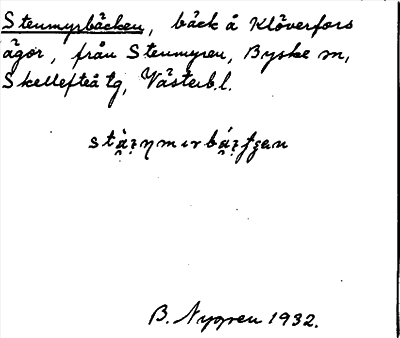 Stenmyrbäcken, bäck å Klöverfors
ägor, från Stenmyren, Byske sn,
Skellefteå tg, Västerb.l.
B. Nygren 1932.